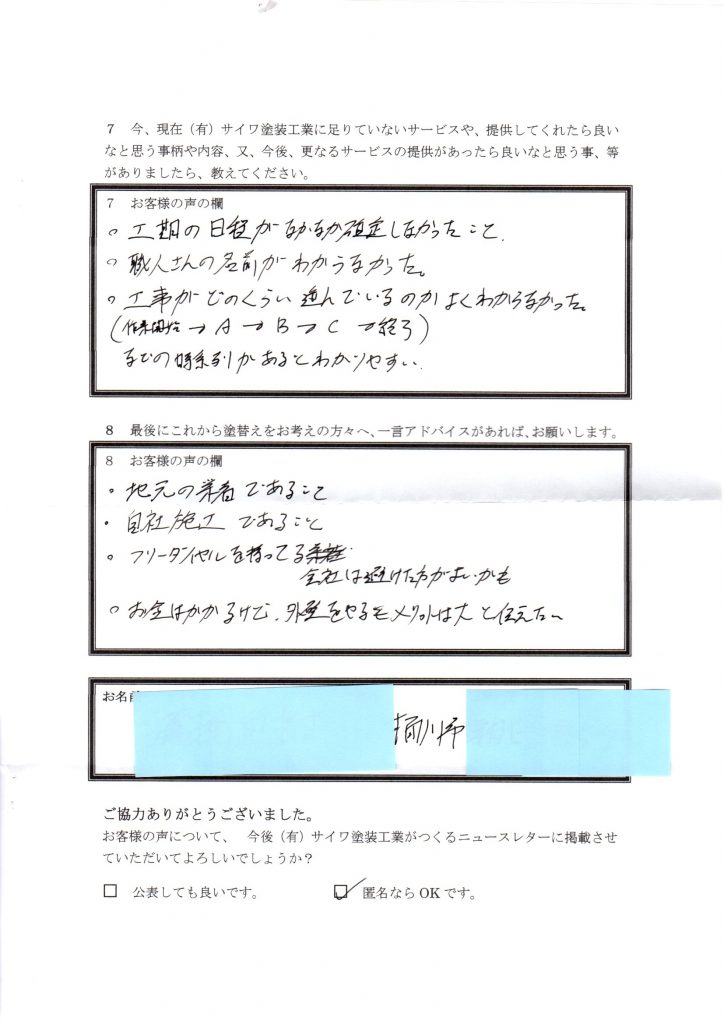 7 今、現在（有）サイワ塗装工業に足りていないサービスや、提供してくれたら良い
なと思う事柄や内容、又、今後、更なるサービスの提供があったら良いなと思う事、等
がありましたら、教えてください。
7 お客様の声の欄
○ 工期の日程がなかなか確定しなかったこと.
○ 職人さんの名前がわからなかった。
○ 工事がどのくらい進んでいるのかよくわからなかった。
(作業開始→A→B→C→終了)
などの時系列があるとわかりやすい.
8 最後にこれから塗替えをお考えの方々へ、一言アドバイスがあれば、お願いします。
8 お客様の声の欄
・地元の業者であること
・自社施工であること
○ フリーダイヤルを持ってる
会社は避けた方がよいかも
○ お金はかかるけど、外壁をやるメリットは大と伝えたい
お名前
桶川市
ご協力ありがとうございました。
お客様の声について、 今後（有）サイワ塗装工業がつくるニュースレターに掲載させ
ていただいてよろしいでしょうか？
□ 公表しても良いです。 ☑ 匿名なら OK です。